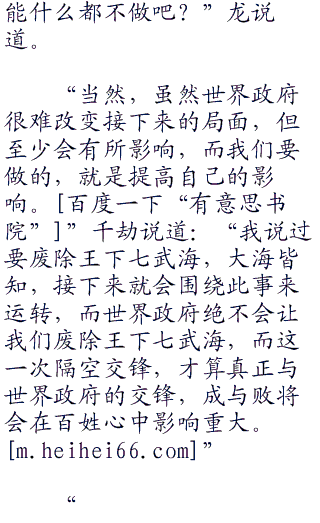 能什么都不做吧？”龙说
道。
“当然，虽然世界政府
很难改变接下来的局面，但
至少会有所影响，而我们要
做的，就是提高自己的影
响。[百度一下“有意思书
院”]”千劫说道：“我说过
要废除王下七武海，大海皆
知，接下来就会围绕此事来
运转，而世界政府绝不会让
我们废除王下七武海，而这
一次隔空交锋，才算真正与
世界政府的交锋，成与败将
会在百姓心中影响重大。
[m.heihei66.com]”
“